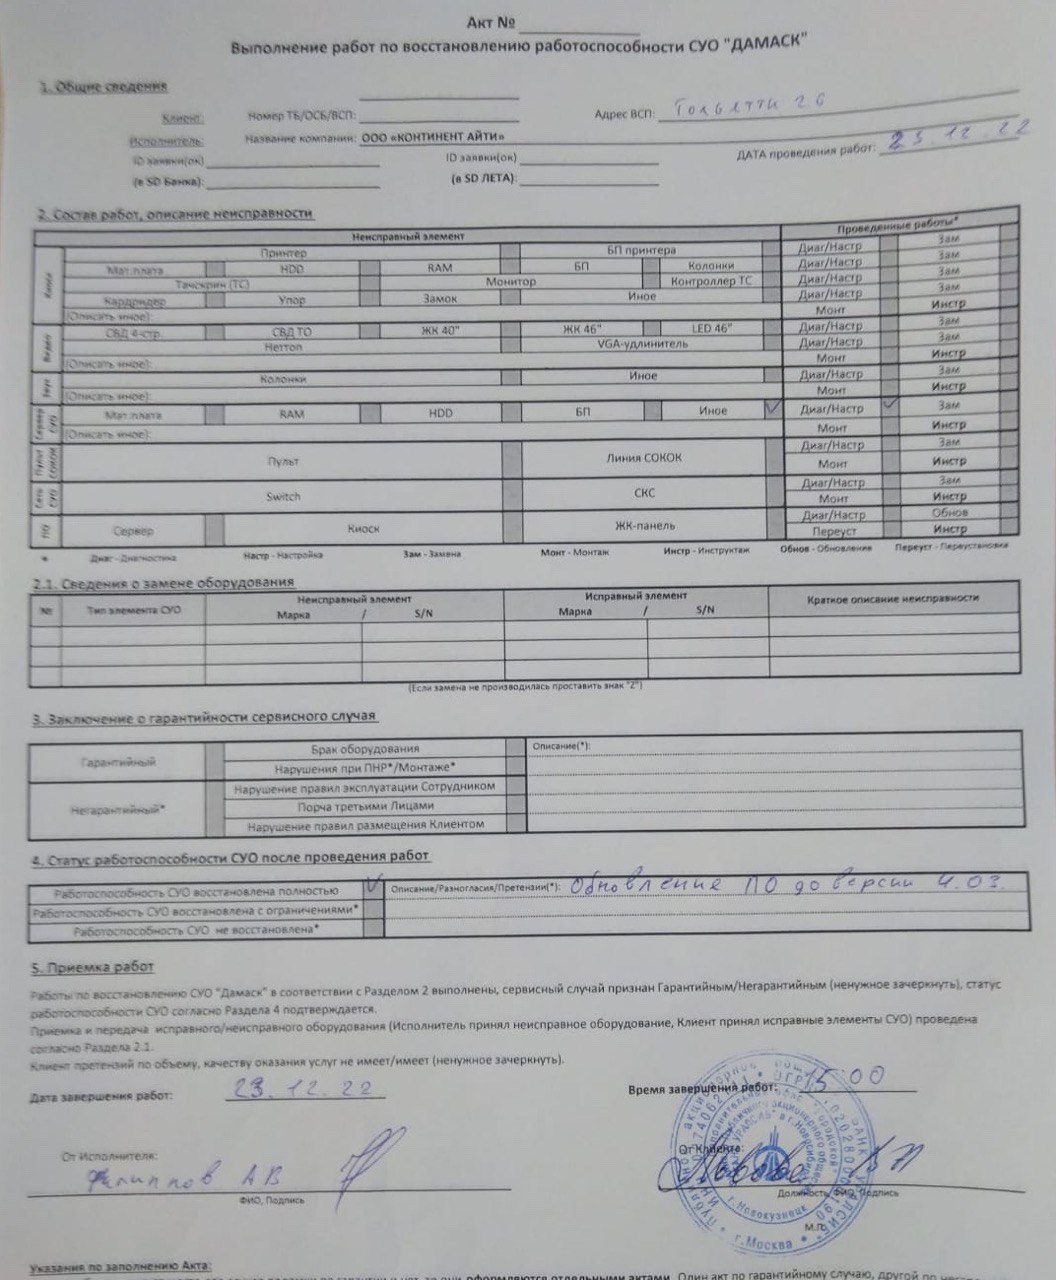 Акт №
Выполнение работ по восстановлению работоспособности СУО "ДАМАСК"
1. Общие сведения
Клиент: Номер ТБ/ОСБ/ВСП: Адрес ВСП: Тольятти 26
Исполнитель: Название компании: ООО «КОНТИНЕНТ АЙТИ»
ДАТА проведения работ: 23.12.22
ID заявки(ок) ID заявки(ок)
(в SD Банка): (в SD ЛЕТА):
2. Состав работ, описание неисправности
Неисправный элемент Проведенные работы*
Киоск Принтер БП принтера Диаг/Настр Зам
Мат.плата HDD RAM БП Колонки Диаг/Настр Зам
Тачскрин (ТС) Монитор Контроллер ТС Диаг/Настр Зам
Кардридер Упор Замок Иное Диаг/Настр Зам
(Описать иное): Монт Инстр
Видео СВД 4-стр. СВД ТО ЖК 40" ЖК 46" LED 46" Диаг/Настр Зам
Неттоп VGA-удлинитель Диаг/Настр Зам
(Описать иное): Монт Инстр
Звук Колонки Иное Диаг/Настр Зам
(Описать иное): Монт Инстр
Сервер СУО Мат.плата RAM HDD БП Иное Диаг/Настр Зам
(Описать иное): Монт Инстр
Пульт СОКОК Пульт Линия СОКОК Диаг/Настр Зам
Монт Инстр
Сеть СУО Switch СКС Диаг/Настр Зам
Монт Инстр
ПО Сервер Киоск ЖК-панель Диаг/Настр Обнов
Переуст Инстр
* Диаг - Диагностика Настр - Настройка Зам - Замена Монт - Монтаж Инстр - Инструктаж Обнов - Обновление Переуст - Переустановка
2.1. Сведения о замене оборудования
№ Тип элемента СУО Неисправный элемент Исправный элемент Краткое описание неисправности
Марка / S/N Марка / S/N
(Если замена не производилась проставить знак "Z")
3. Заключение о гарантийности сервисного случая
Гарантийный Брак оборудования Описание(*):
Нарушения при ПНР*/Монтаже*
Негарантийный* Нарушение правил эксплуатации Сотрудником
Порча третьими Лицами
Нарушение правил размещения Клиентом
4. Статус работоспособности СУО после проведения работ
Работоспособность СУО восстановлена полностью Описание/Разногласия/Претензии(*): Обновление ПО до версии 4.03.
Работоспособность СУО восстановлена с ограничениями*
Работоспособность СУО не восстановлена*
5. Приемка работ
Работы по восстановлению СУО "Дамаск" в соответствии с Разделом 2 выполнены, сервисный случай признан Гарантийным/Негарантийным (ненужное зачеркнуть), статус
работоспособности СУО согласно Раздела 4 подтверждается.
Приемка и передача исправного/неисправного оборудования (Исполнитель принял неисправное оборудование, Клиент принял исправные элементы СУО) проведена
согласно Раздела 2.1.
Клиент претензий по объему, качеству оказания услуг не имеет/имеет (ненужное зачеркнуть).
Дата завершения работ: 23.12.22 Время завершения работ: 15:00
От Исполнителя: От Клиента:
Филиппов АВ
ФИО, Подпись Должность, ФИО, Подпись
М.П.
г.Новокузнецк
г.Москва
Указания по заполнению Акта:
оформляются отдельными актами. Один акт по гарантийному случаю, другой по